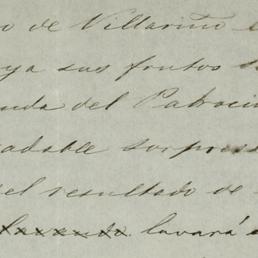 de Villarino
ya sus frutos
del Patrocin
adable sorpres
el resultado de
lavará